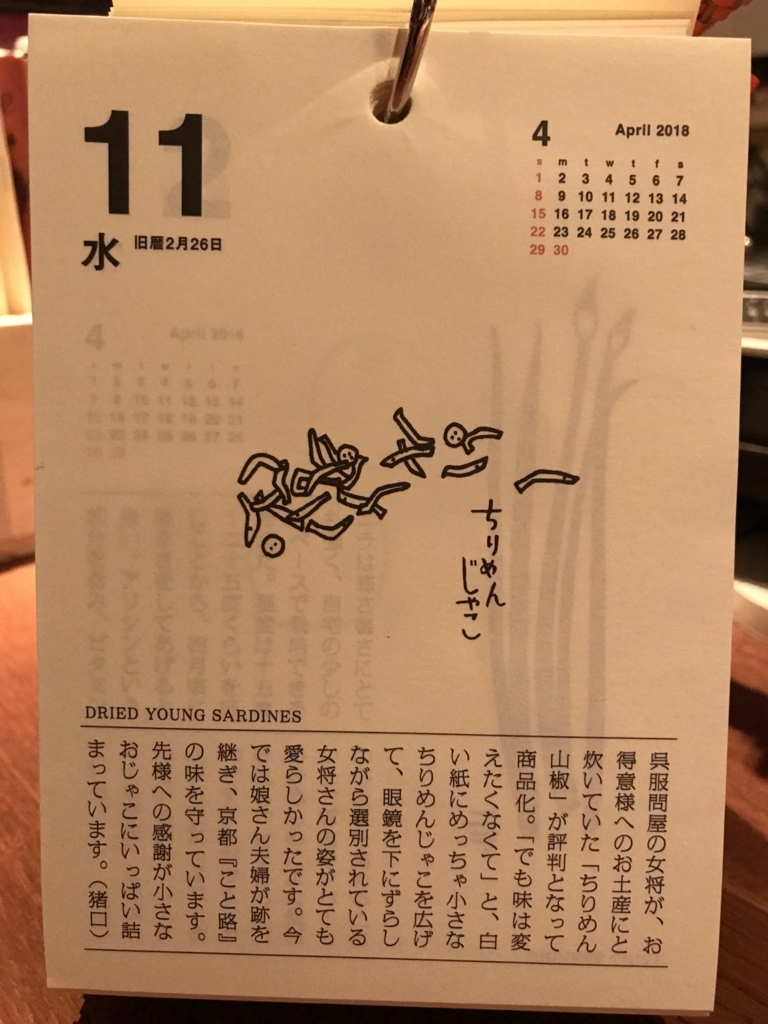 11
水 旧暦2月26日
4 April 2018
s m t w t f s
1 2 3 4 5 6 7
8 9 10 11 12 13 14
15 16 17 18 19 20 21
22 23 24 25 26 27 28
29 30
ちりめん
じゃこ
DRIED YOUNG SARDINES
呉服問屋の女将が、お
得意様へのお土産にと
炊いていた「ちりめん
山椒」が評判となって
商品化。「でも味は変
えたくなくて」と、白
い紙にめっちゃ小さな
ちりめんじゃこを広げ
て、眼鏡を下にずらし
ながら選別されている
女将さんの姿がとても
愛らしかったです。今
では娘さん夫婦が跡を
継ぎ、京都『こと路』
の味を守っています。
先様への感謝が小さな
おじゃこにいっぱい詰
まっています。（猪口）